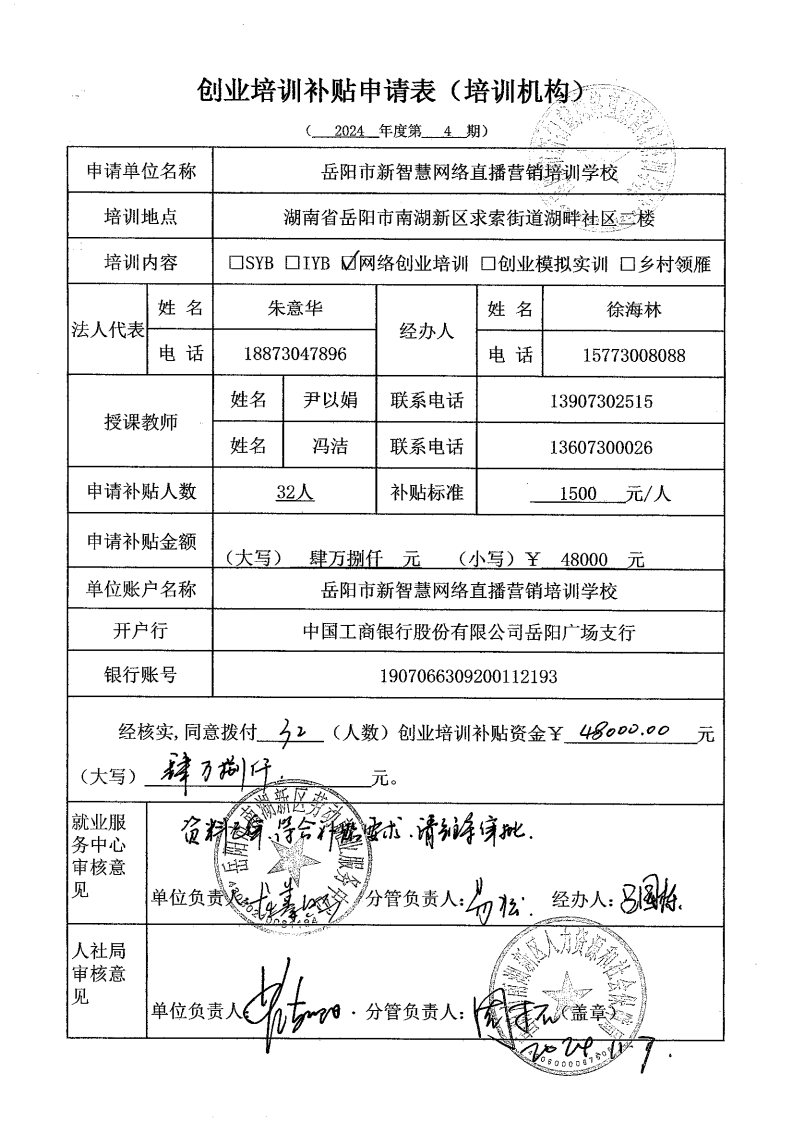 创业培训补贴申请表（培训机构）
（ 2024 年度第 4 期）
申请单位名称 岳阳市新智慧网络直播营销培训学校
培训地点 湖南省岳阳市南湖新区求索街道湖畔社区二楼
培训内容 □SYB □IYB ☑网络创业培训 □创业模拟实训 □乡村领雁
法人代表 姓 名 朱意华 经办人 姓 名 徐海林
电 话 18873047896 电 话 15773008088
授课教师 姓名 尹以娟 联系电话 13907302515
姓名 冯洁 联系电话 13607300026
申请补贴人数 32人 补贴标准 1500 元/人
申请补贴金额 （大写） 肆万捌仟 元 （小写）￥ 48000 元
单位账户名称 岳阳市新智慧网络直播营销培训学校
开户行 中国工商银行股份有限公司岳阳广场支行
银行账号 1907066309200112193
经核实,同意拨付 32 （人数）创业培训补贴资金￥ 48000.00 元
（大写） 肆万捌仟 元。
就业服
务中心
审核意
见
资料已审,符合补贴要求,请领导审批.
单位负责人: 分管负责人: 经办人:
人社局
审核意
见
单位负责人: 分管负责人: （盖章）
2024.11.7.